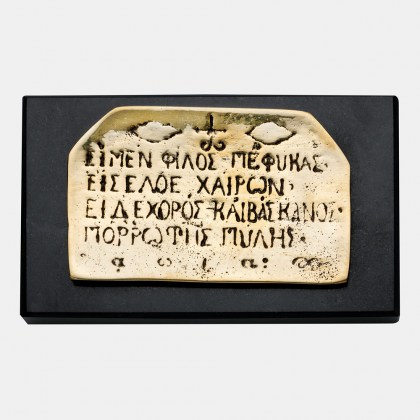 ΕΙ ΜΕΝ ΦΙΛΟΣ ΠΕΦΥΚΑΣ
ΕΙΣΕΛΘΕ ΧΑΙΡΩΝ·
ΕΙ Δ ΕΧΘΡΟΣ ΚΑΙ ΒΑΣΚΑΝΟΣ·
ΠΟΡΡΩ ΤΗΣ ΠΥΛΗΣ·